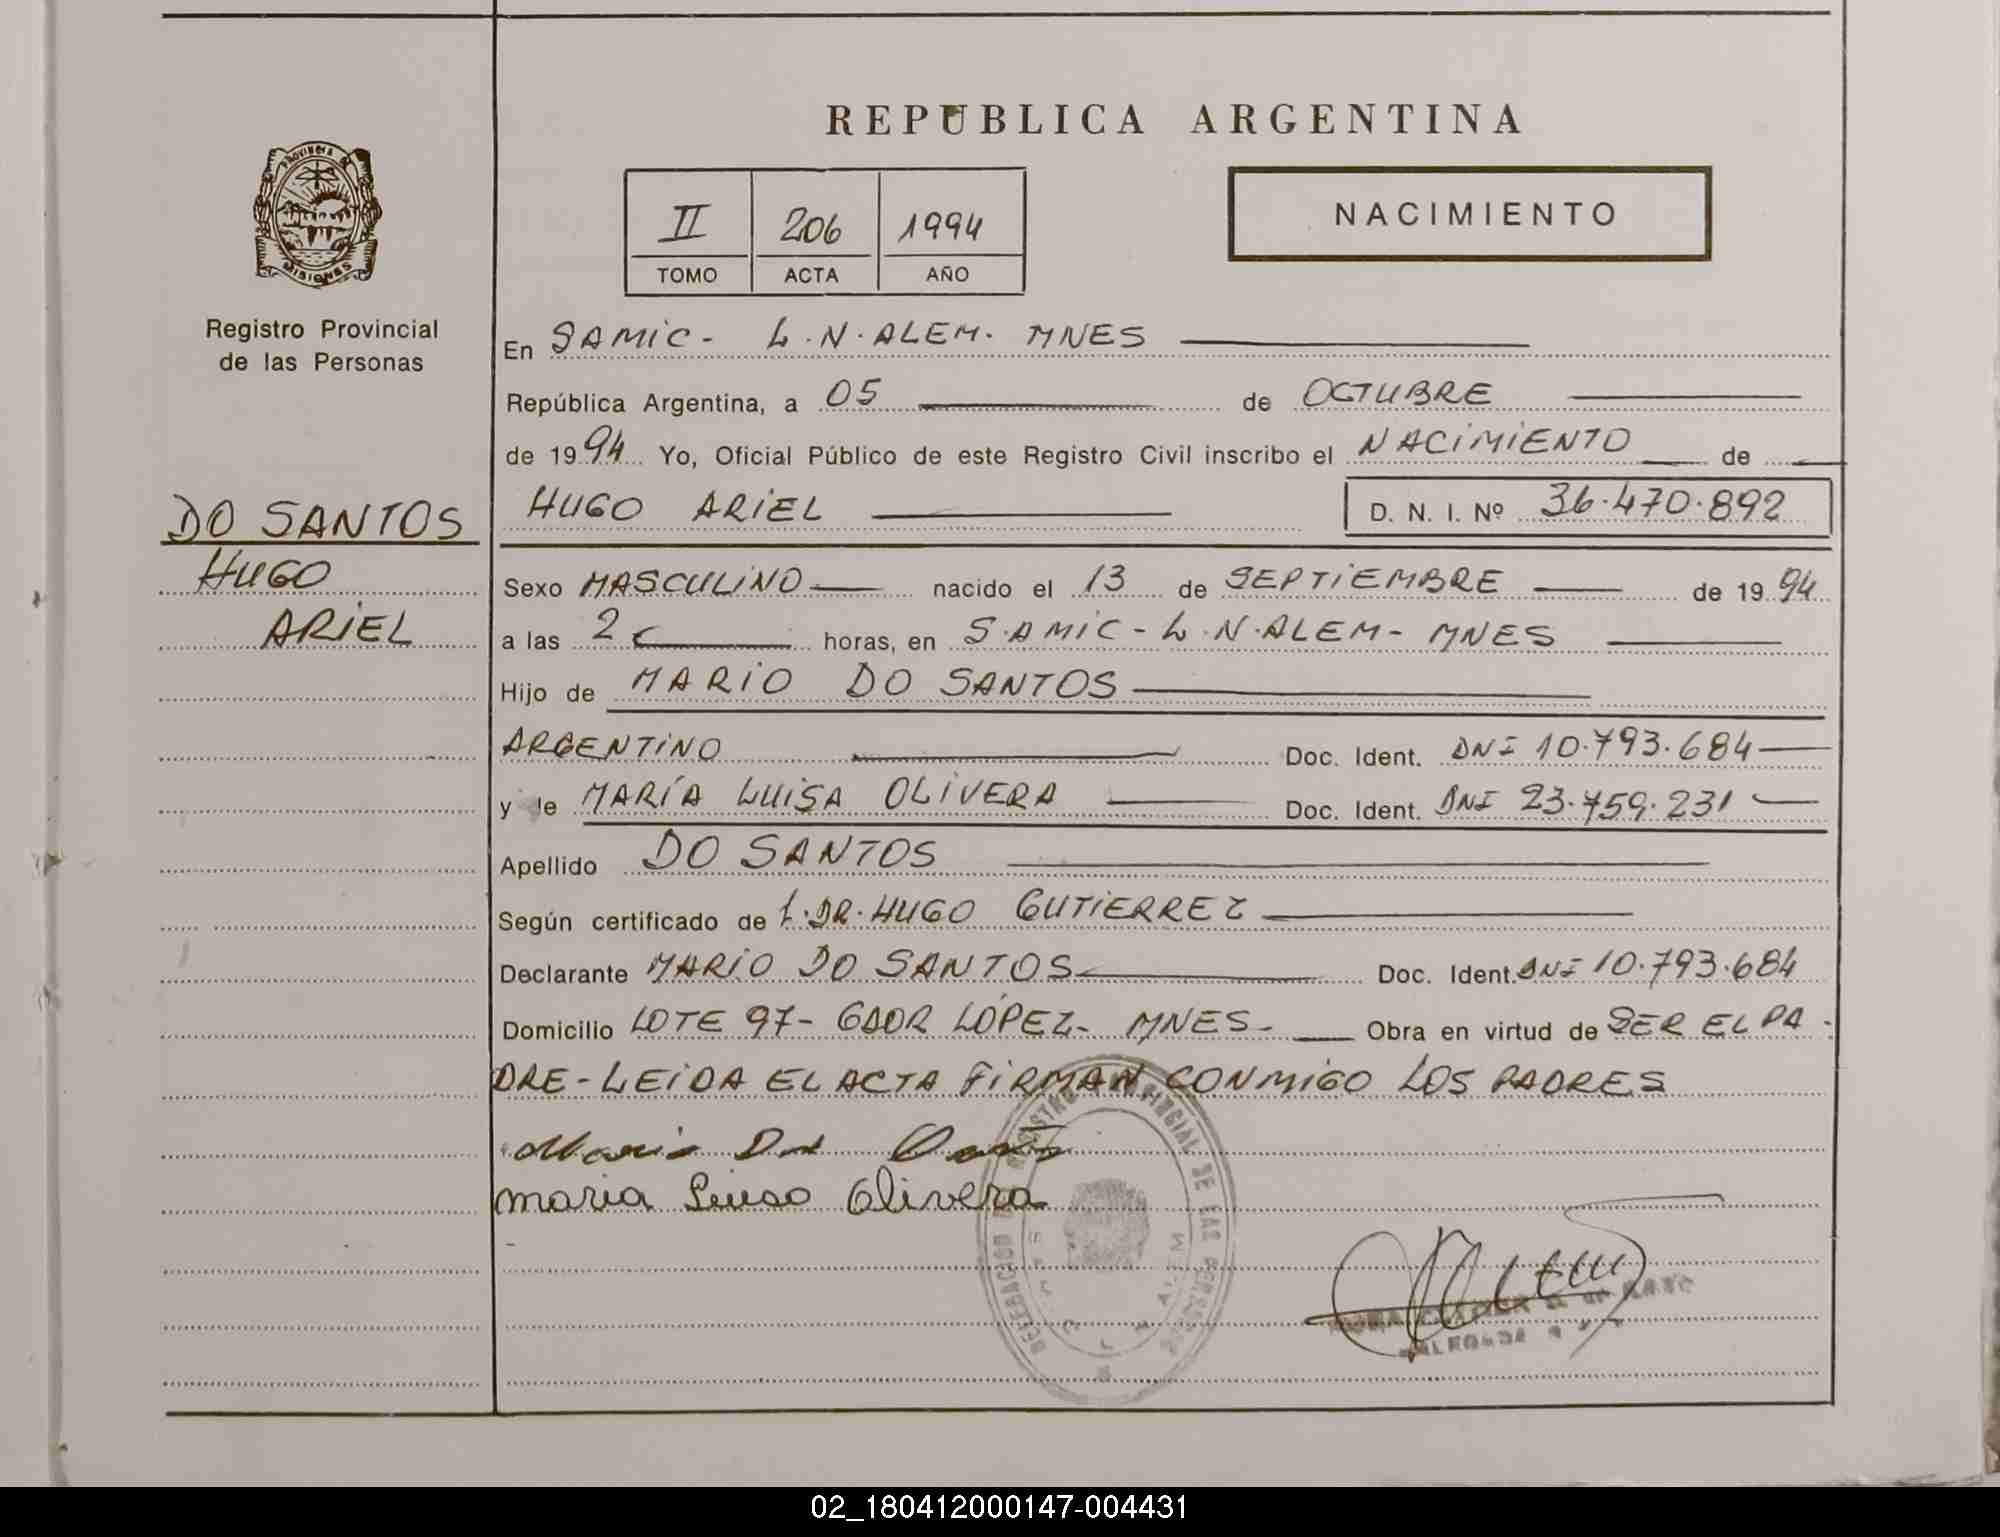 REPUBLICA ARGENTINA
PROVINCIA DE
MISIONES
II 206 1994
TOMO ACTA AÑO
NACIMIENTO
Registro Provincial
de las Personas
En SAMIC- L.N.ALEM. MNES
República Argentina, a 05 de OCTUBRE
de 1994 Yo, Oficial Público de este Registro Civil inscribo el NACIMIENTO de
HUGO ARIEL D. N. I. Nº 36.470.892
DO SANTOS
HUGO
ARIEL
Sexo MASCULINO nacido el 13 de SEPTIEMBRE de 1994
a las 2 horas, en SAMIC-L.N.ALEM- MNES
Hijo de MARIO DO SANTOS
ARGENTINO Doc. Ident. DNI 10.793.684
y de MARÍA LUISA OLIVERA Doc. Ident. DNI 23.759.231
Apellido DO SANTOS
Según certificado de DR. HUGO GUTIERREZ
Declarante MARIO DO SANTOS Doc. Ident. DNI 10.793.684
Domicilio LOTE 97- GDOR LÓPEZ- MNES- Obra en virtud de SER EL PA-
DRE-LEIDA EL ACTA FIRMAN CONMIGO LOS PADRES
Mario Do Santos
maria Luisa Olivera
02_180412000147-004431